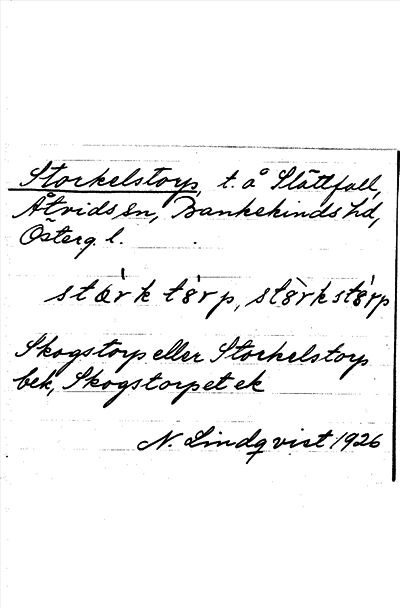 Storkelstorp, t. å Slättfall,
Åtvids sn, Bankekinds hd,
Österg. l.
stærk tȯrp, stȯrkstȯrp
Skogstorp eller Storkelstorp
bek, Skogstorpet ek
N. Lindqvist 1926